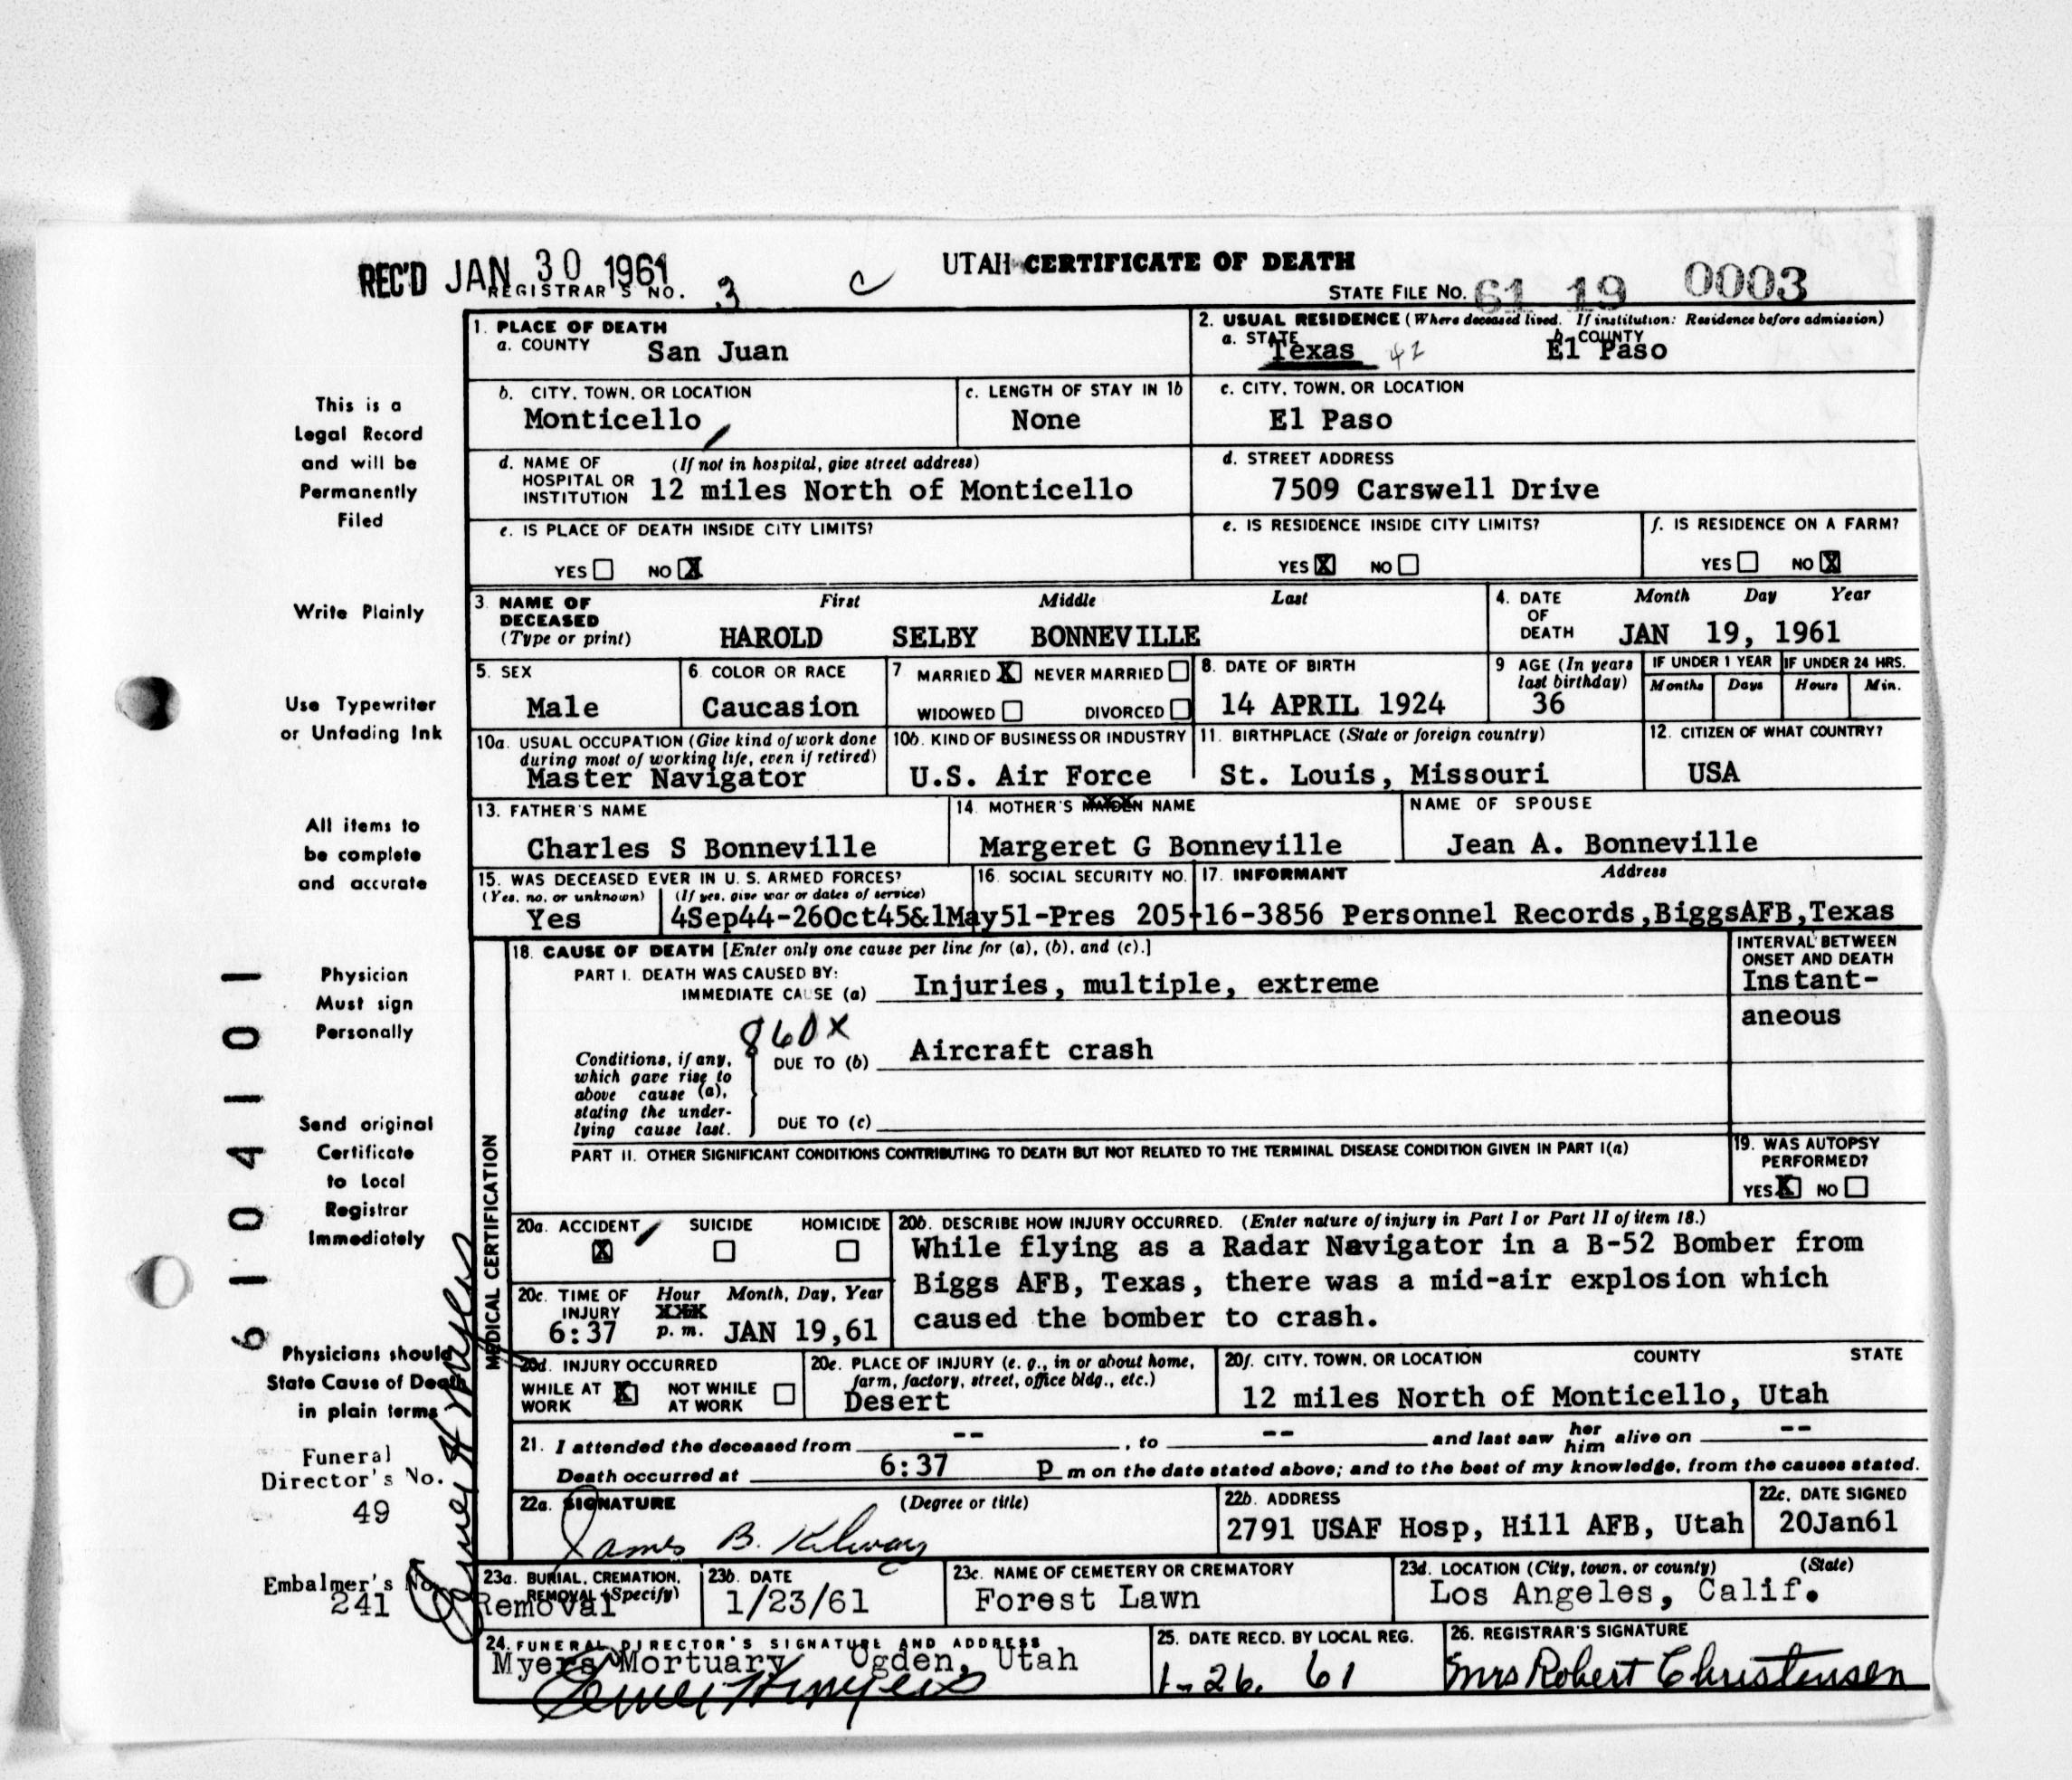 REC'D JAN 30 1961
REGISTRAR'S NO. 3
UTAH CERTIFICATE OF DEATH
STATE FILE No. 61 19 0003
This is a
Legal Record
and will be
Permanently
Filed
Write Plainly
Use Typewriter
or Unfading Ink
All items to
be complete
and accurate
Physician
Must sign
Personally
Send original
Certificate
to Local
Registrar
Immediately
Physicians should
State Cause of Death
in plain terms
Funeral
Director's No.
49
Embalmer's No.
241
6104101
1. PLACE OF DEATH
a. COUNTY San Juan
2. USUAL RESIDENCE (Where deceased lived. If institution: Residence before admission)
a. STATE Texas 42 b. COUNTY El Paso
b. CITY, TOWN, OR LOCATION
Monticello
c. LENGTH OF STAY IN 1b
None
c. CITY, TOWN, OR LOCATION
El Paso
d. NAME OF (If not in hospital, give street address)
HOSPITAL OR
INSTITUTION 12 miles North of Monticello
d. STREET ADDRESS
7509 Carswell Drive
e. IS PLACE OF DEATH INSIDE CITY LIMITS?
YES NO X
e. IS RESIDENCE INSIDE CITY LIMITS?
YES X NO
f. IS RESIDENCE ON A FARM?
YES NO X
3. NAME OF DECEASED (Type or print) First Middle Last
HAROLD SELBY BONNEVILLE
4. DATE OF DEATH Month Day Year
JAN 19, 1961
5. SEX
Male
6. COLOR OR RACE
Caucasion
7 MARRIED X NEVER MARRIED
WIDOWED DIVORCED
8. DATE OF BIRTH
14 APRIL 1924
9 AGE (In years last birthday)
36
IF UNDER 1 YEAR
Months Days
IF UNDER 24 HRS.
Hours Min.
10a. USUAL OCCUPATION (Give kind of work done
during most of working life, even if retired)
Master Navigator
10b. KIND OF BUSINESS OR INDUSTRY
U.S. Air Force
11. BIRTHPLACE (State or foreign country)
St. Louis, Missouri
12. CITIZEN OF WHAT COUNTRY?
USA
13. FATHER'S NAME
Charles S Bonneville
14. MOTHER'S MAIDEN NAME
Margeret G Bonneville
NAME OF SPOUSE
Jean A. Bonneville
15. WAS DECEASED EVER IN U. S. ARMED FORCES?
(Yes, no, or unknown) (If yes, give war or dates of service)
Yes 4Sep44-26Oct45&1May51-Pres
16. SOCIAL SECURITY NO.
205-16-3856
17. INFORMANT Address
Personnel Records,BiggsAFB,Texas
MEDICAL CERTIFICATION
18. CAUSE OF DEATH [Enter only one cause per line for (a), (b), and (c).]
PART I. DEATH WAS CAUSED BY:
IMMEDIATE CAUSE (a) Injuries, multiple, extreme
INTERVAL BETWEEN
ONSET AND DEATH
Instant-
aneous
860X
Conditions, if any,
which gave rise to
above cause (a),
stating the under-
lying cause last.
DUE TO (b) Aircraft crash
DUE TO (c)
PART II. OTHER SIGNIFICANT CONDITIONS CONTRIBUTING TO DEATH BUT NOT RELATED TO THE TERMINAL DISEASE CONDITION GIVEN IN PART I(a)
19. WAS AUTOPSY
PERFORMED?
YES X NO
20a. ACCIDENT SUICIDE HOMICIDE
X
20b. DESCRIBE HOW INJURY OCCURRED. (Enter nature of injury in Part I or Part II of item 18.)
While flying as a Radar Navigator in a B-52 Bomber from
Biggs AFB, Texas, there was a mid-air explosion which
caused the bomber to crash.
20c. TIME OF INJURY Hour Month, Day, Year
6:37 p. m. JAN 19,61
20d. INJURY OCCURRED
WHILE AT WORK X NOT WHILE AT WORK
20e. PLACE OF INJURY (e. g., in or about home,
farm, factory, street, office bldg., etc.)
Desert
20f. CITY, TOWN, OR LOCATION COUNTY STATE
12 miles North of Monticello, Utah
21. I attended the deceased from -- , to -- and last saw her him alive on --
Death occurred at 6:37 P m on the date stated above; and to the best of my knowledge, from the causes stated.
22a. SIGNATURE (Degree or title)
James B.
22b. ADDRESS
2791 USAF Hosp, Hill AFB, Utah
22c. DATE SIGNED
20Jan61
23a. BURIAL, CREMATION,
REMOVAL (Specify)
Removal
23b. DATE
1/23/61
23c. NAME OF CEMETERY OR CREMATORY
Forest Lawn
23d. LOCATION (City, town, or county) (State)
Los Angeles, Calif.
24. FUNERAL DIRECTOR'S SIGNATURE AND ADDRESS
Myers Mortuary Ogden, Utah
25. DATE RECD. BY LOCAL REG.
1-26. 61
26. REGISTRAR'S SIGNATURE
Mrs Robert Christensen